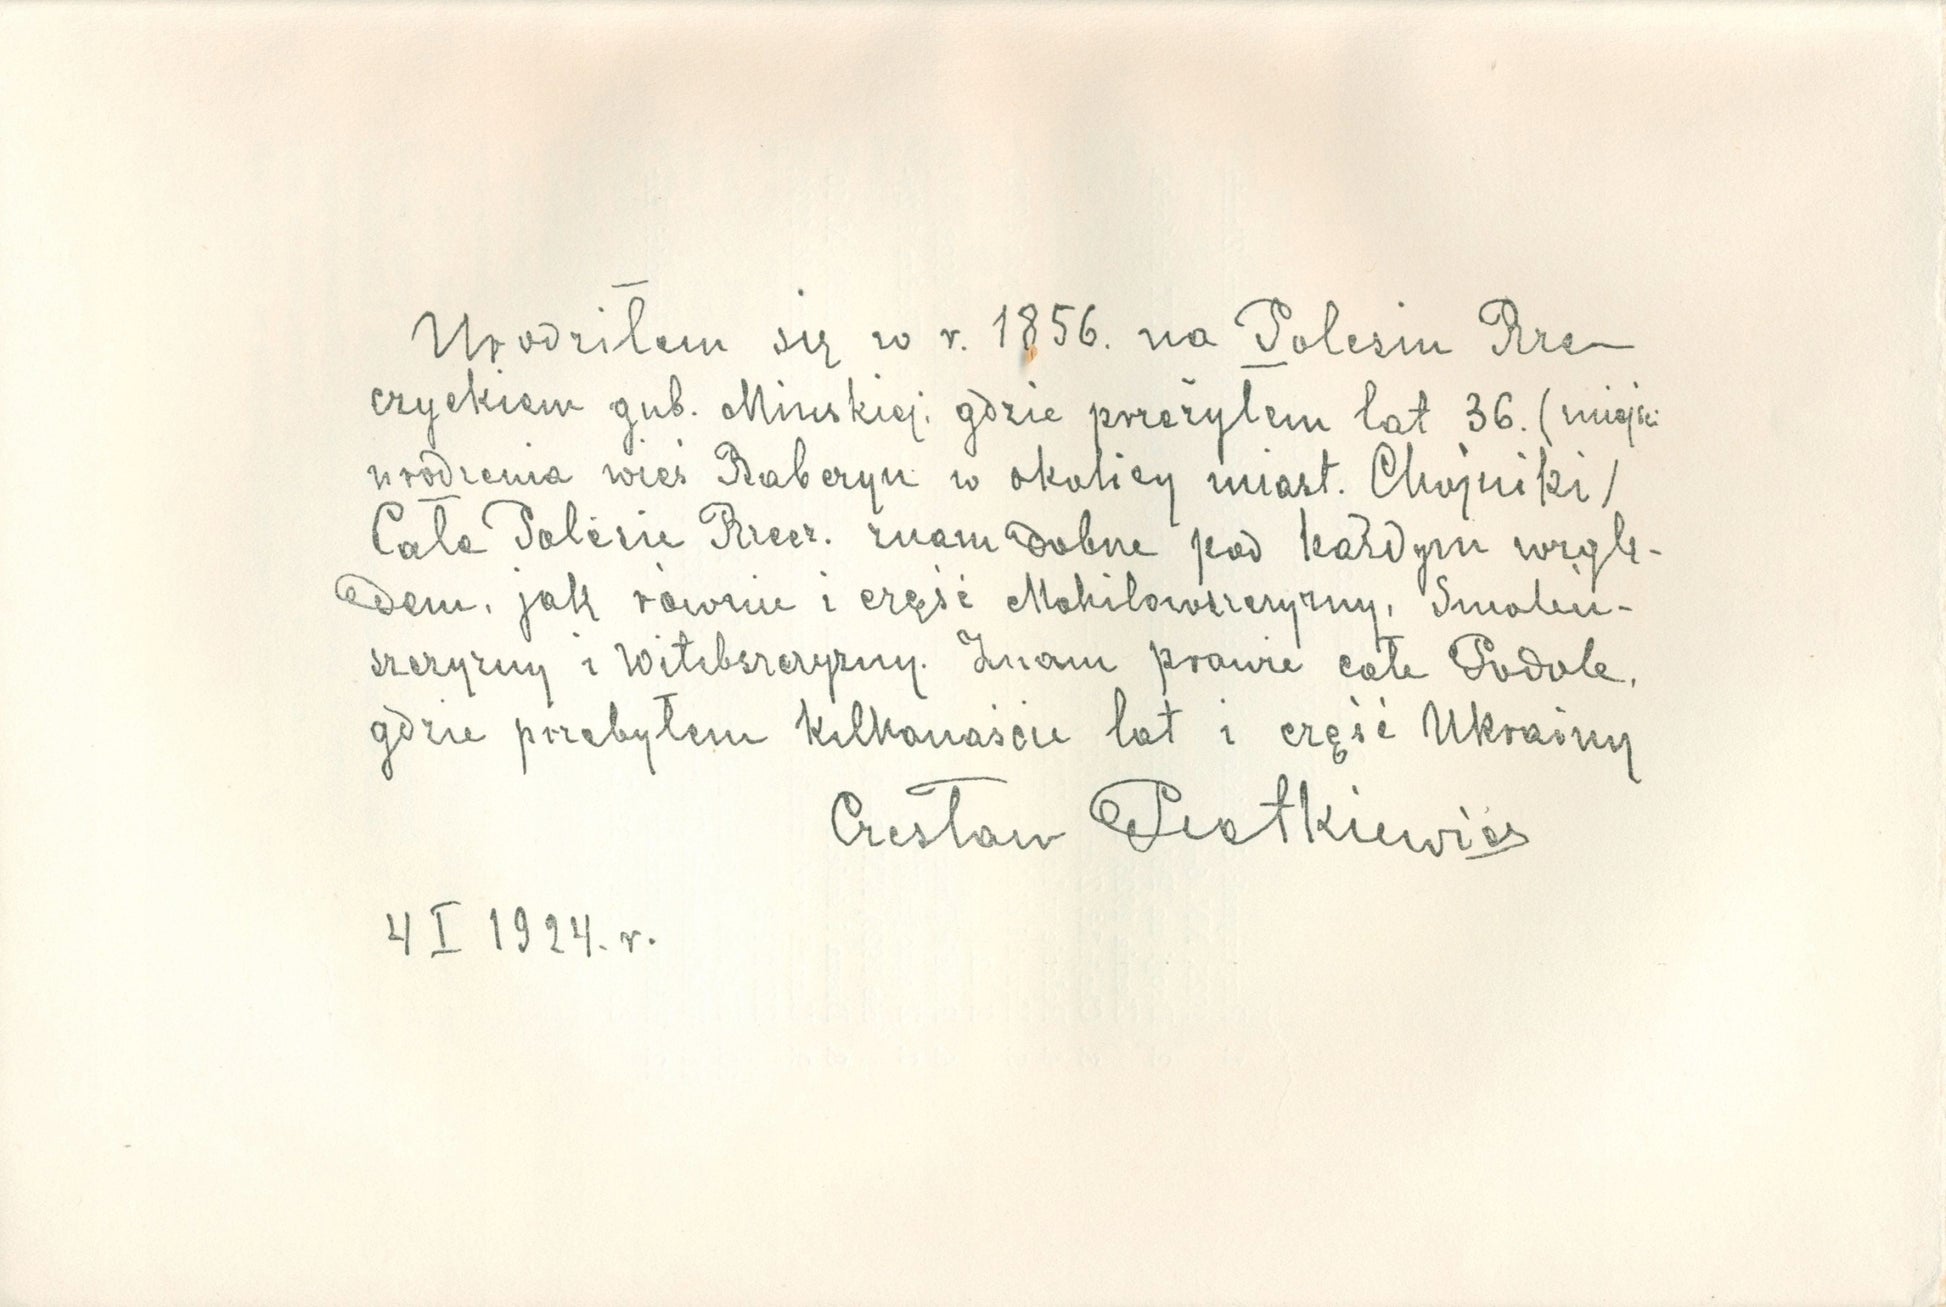 Urodziłem się w r. 1856. na Polesiu Rze-
czyckiem gub. Mińskiej, gdzie przeżyłem lat 36. (miejsc
urodzenia wieś Babczyn w okolicy miast. Chojniki)
Całe Polesie Rzecz. znam dobrze pod każdym wzglę-
dem, jak równie i część Mohilowszczyzny, Smoleń-
szczyzny i Witebszczyzny. Znam prawie całe Podole,
gdzie przebyłem kilkanaście lat i część Ukrainy
Czesław Pietkiewicz
4 I 1924. r.